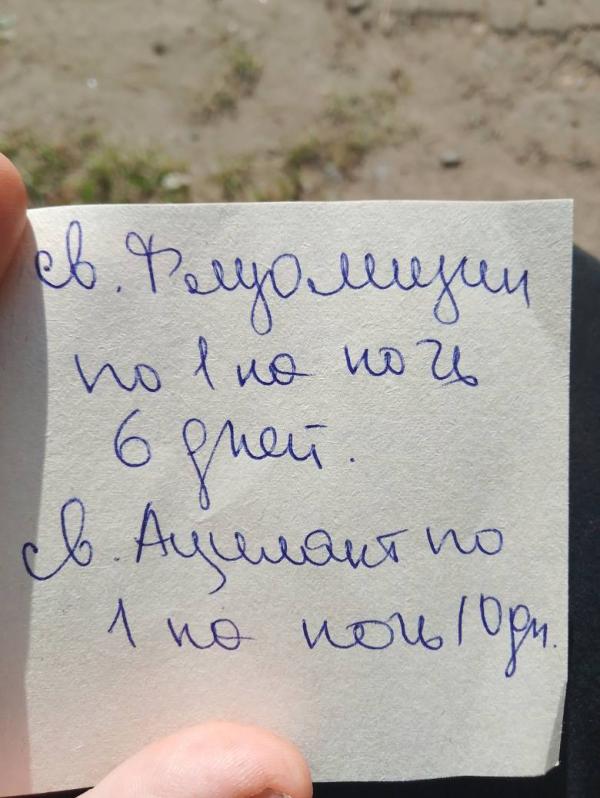 св. Флуомизин
по 1 на ночь
6 дней.
св. Ацилакт по
1 на ночь 10 дн.